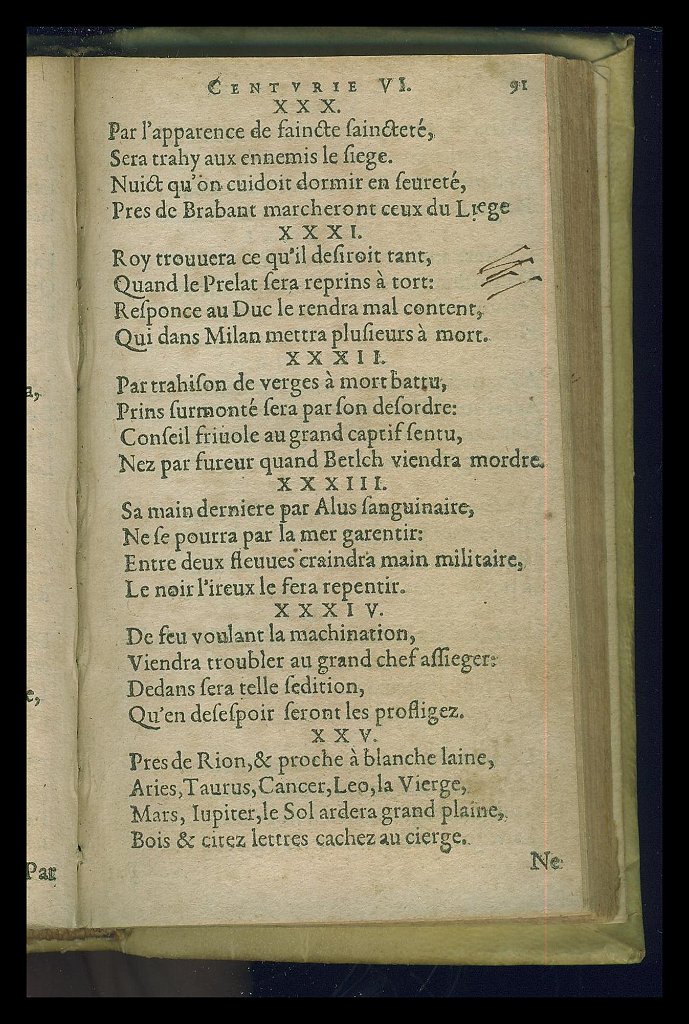 a,
e,
Par
CENTVRIE VI. 91
XXX.
Par l'apparence de faincte ſaincteté,
Sera trahy aux ennemis le ſiege.
Nuict qu'on cuidoit dormir en ſeureté,
Pres de Brabant marcheront ceux du Liege
XXXI.
Roy trouuera ce qu'il deſiroit tant,
Quand le Prelat ſera reprins à tort:
Reſponce au Duc le rendra mal content,
Qui dans Milan mettra pluſieurs à mort.
XXXII.
Par trahiſon de verges à mort battu,
Prins ſurmonté ſera par ſon deſordre:
Conſeil friuole au grand captif ſentu,
Nez par fureur quand Betlch viendra mordre.
XXXIII.
Sa main derniere par Alus ſanguinaire,
Ne ſe pourra par la mer garentir:
Entre deux fleuues craindra main militaire,
Le noir l'ireux le fera repentir.
XXXIV.
De feu voulant la machination,
Viendra troubler au grand chef aſſieger:
Dedans ſera telle ſedition,
Qu'en deſeſpoir ſeront les profligez.
XXV.
Pres de Rion,& proche à blanche laine,
Aries,Taurus,Cancer,Leo,la Vierge,
Mars, Iupiter,le Sol ardera grand plaine,
Bois & citez lettres cachez au cierge.
Ne